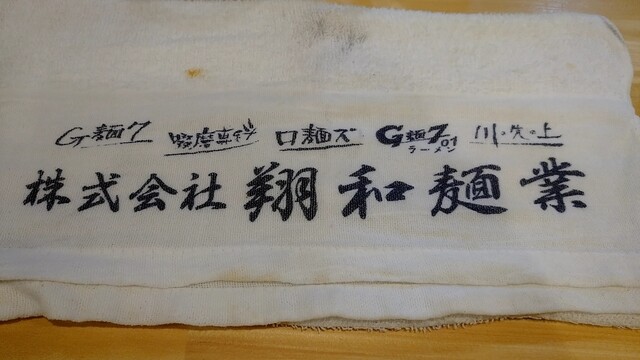 G麺7 啜磨専科 ロ麺ズ G麺7-01 ラーメン 川の先の上
株式会社翔和麺業